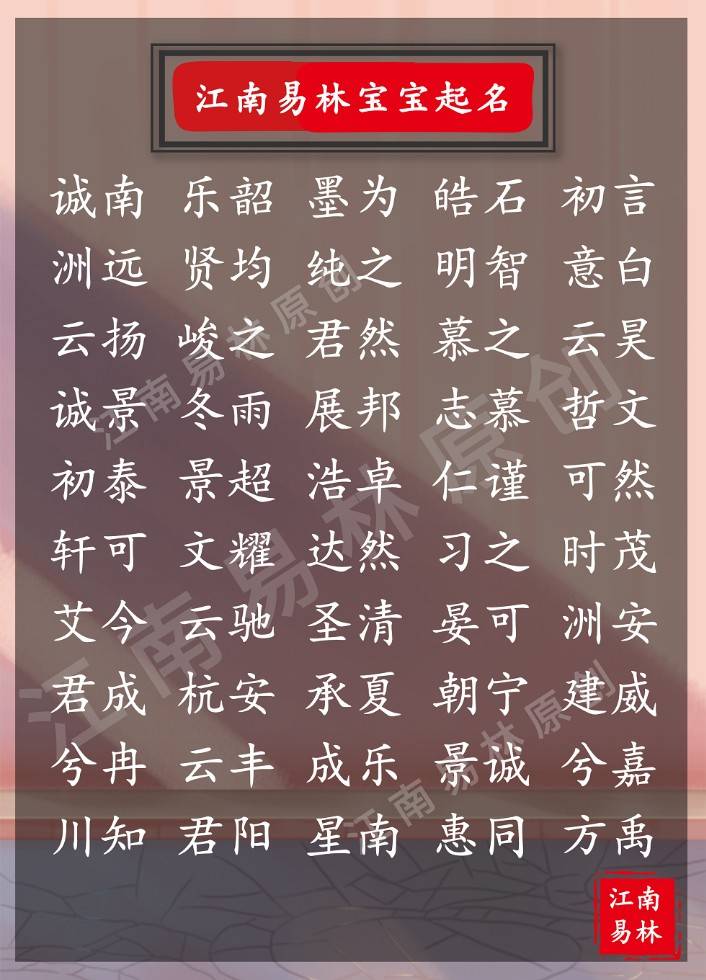 江南易林宝宝起名
诚南 乐韶 墨为 皓石 初言
洲远 贤均 纯之 明智 意白
云扬 峻之 君然 慕之 云昊
诚景 冬雨 展邦 志慕 哲文
初泰 景超 浩卓 仁谨 可然
轩可 文耀 达然 习之 时茂
艾今 云驰 圣清 晏可 洲安
君成 杭安 承夏 朝宁 建威
兮冉 云丰 成乐 景诚 兮嘉
川知 君阳 星南 惠同 方禹
江南
易林
江南易林原创
江南易林原创
江南易林原创